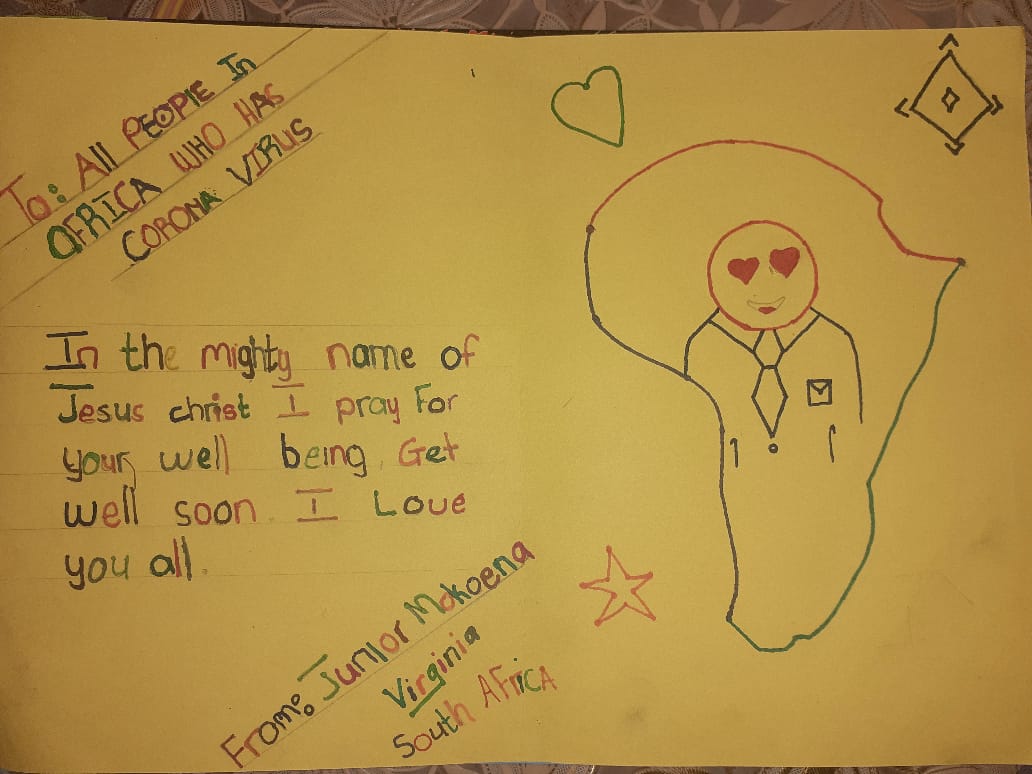 To: All PEOPlE In
AFRICA WHO HAS
CORONA VIRUS
In the mighty name of
Jesus christ I pray For
your well being. Get
well soon. I Love
you all.
From: JunIor Mokoena
Virginia
South AFriCA